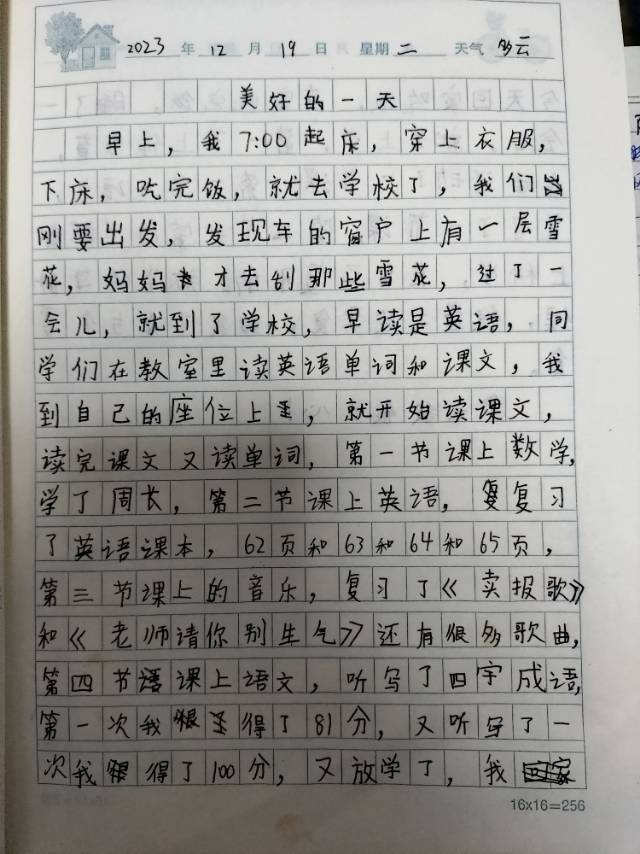 2023 年 12 月 19 日 星期 二 天气 多云
美好的一天
早上，我7:00起床，穿上衣服，
下床，吃完饭，就去学校了，我们
刚要出发，发现车的窗户上有一层雪
花，妈妈才去刮那些雪花，过了一
会儿，就到了学校，早读是英语，同
学们在教室里读英语单词和课文，我
到自己的座位上，就开始读课文，
读完课文又读单词，第一节课上数学，
学了周长，第二节课上英语，复习
了英语课本，62页和63和64和65页，
第三节课上的音乐，复习了《卖报歌》
和《老师请你别生气》还有很多歌曲，
第四节课上语文，听写了四字成语，
第一次我得了81分，又听写了一
次我得了100分，又放学了，我
16x16=256